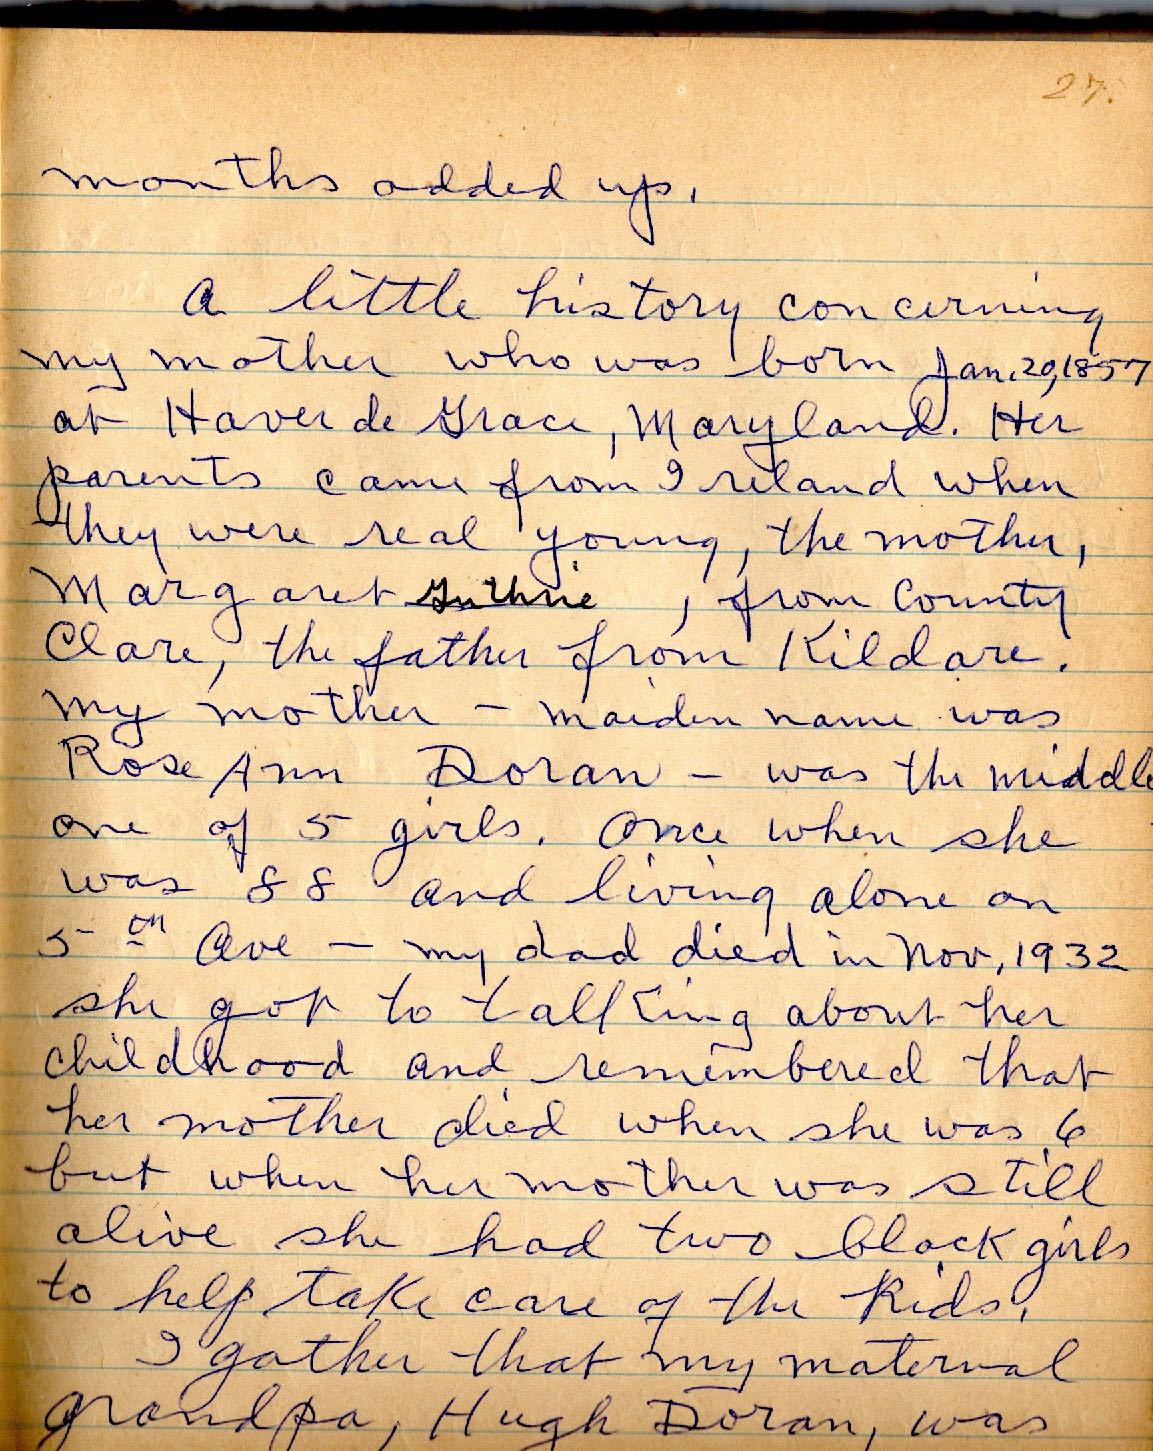 27.
months added up.
A little history concerning
my mother who was born Jan. 20, 1857
at Haver de Grace, Maryland. Her
parents came from Ireland when
they were real young, the mother,
Margaret Guthrie, from County
Clare, the father from Kildare.
My mother - maiden name was
Rose Ann Doran - was the middle
one of 5 girls. Once when she
was 88 and living alone on
5th Ave - my dad died in Nov, 1932
she got to talking about her
childhood and remembered that
her mother died when she was 6
but when her mother was still
alive she had two black girls
to help take care of the kids.
I gather that my maternal
grandpa, Hugh Doran, was